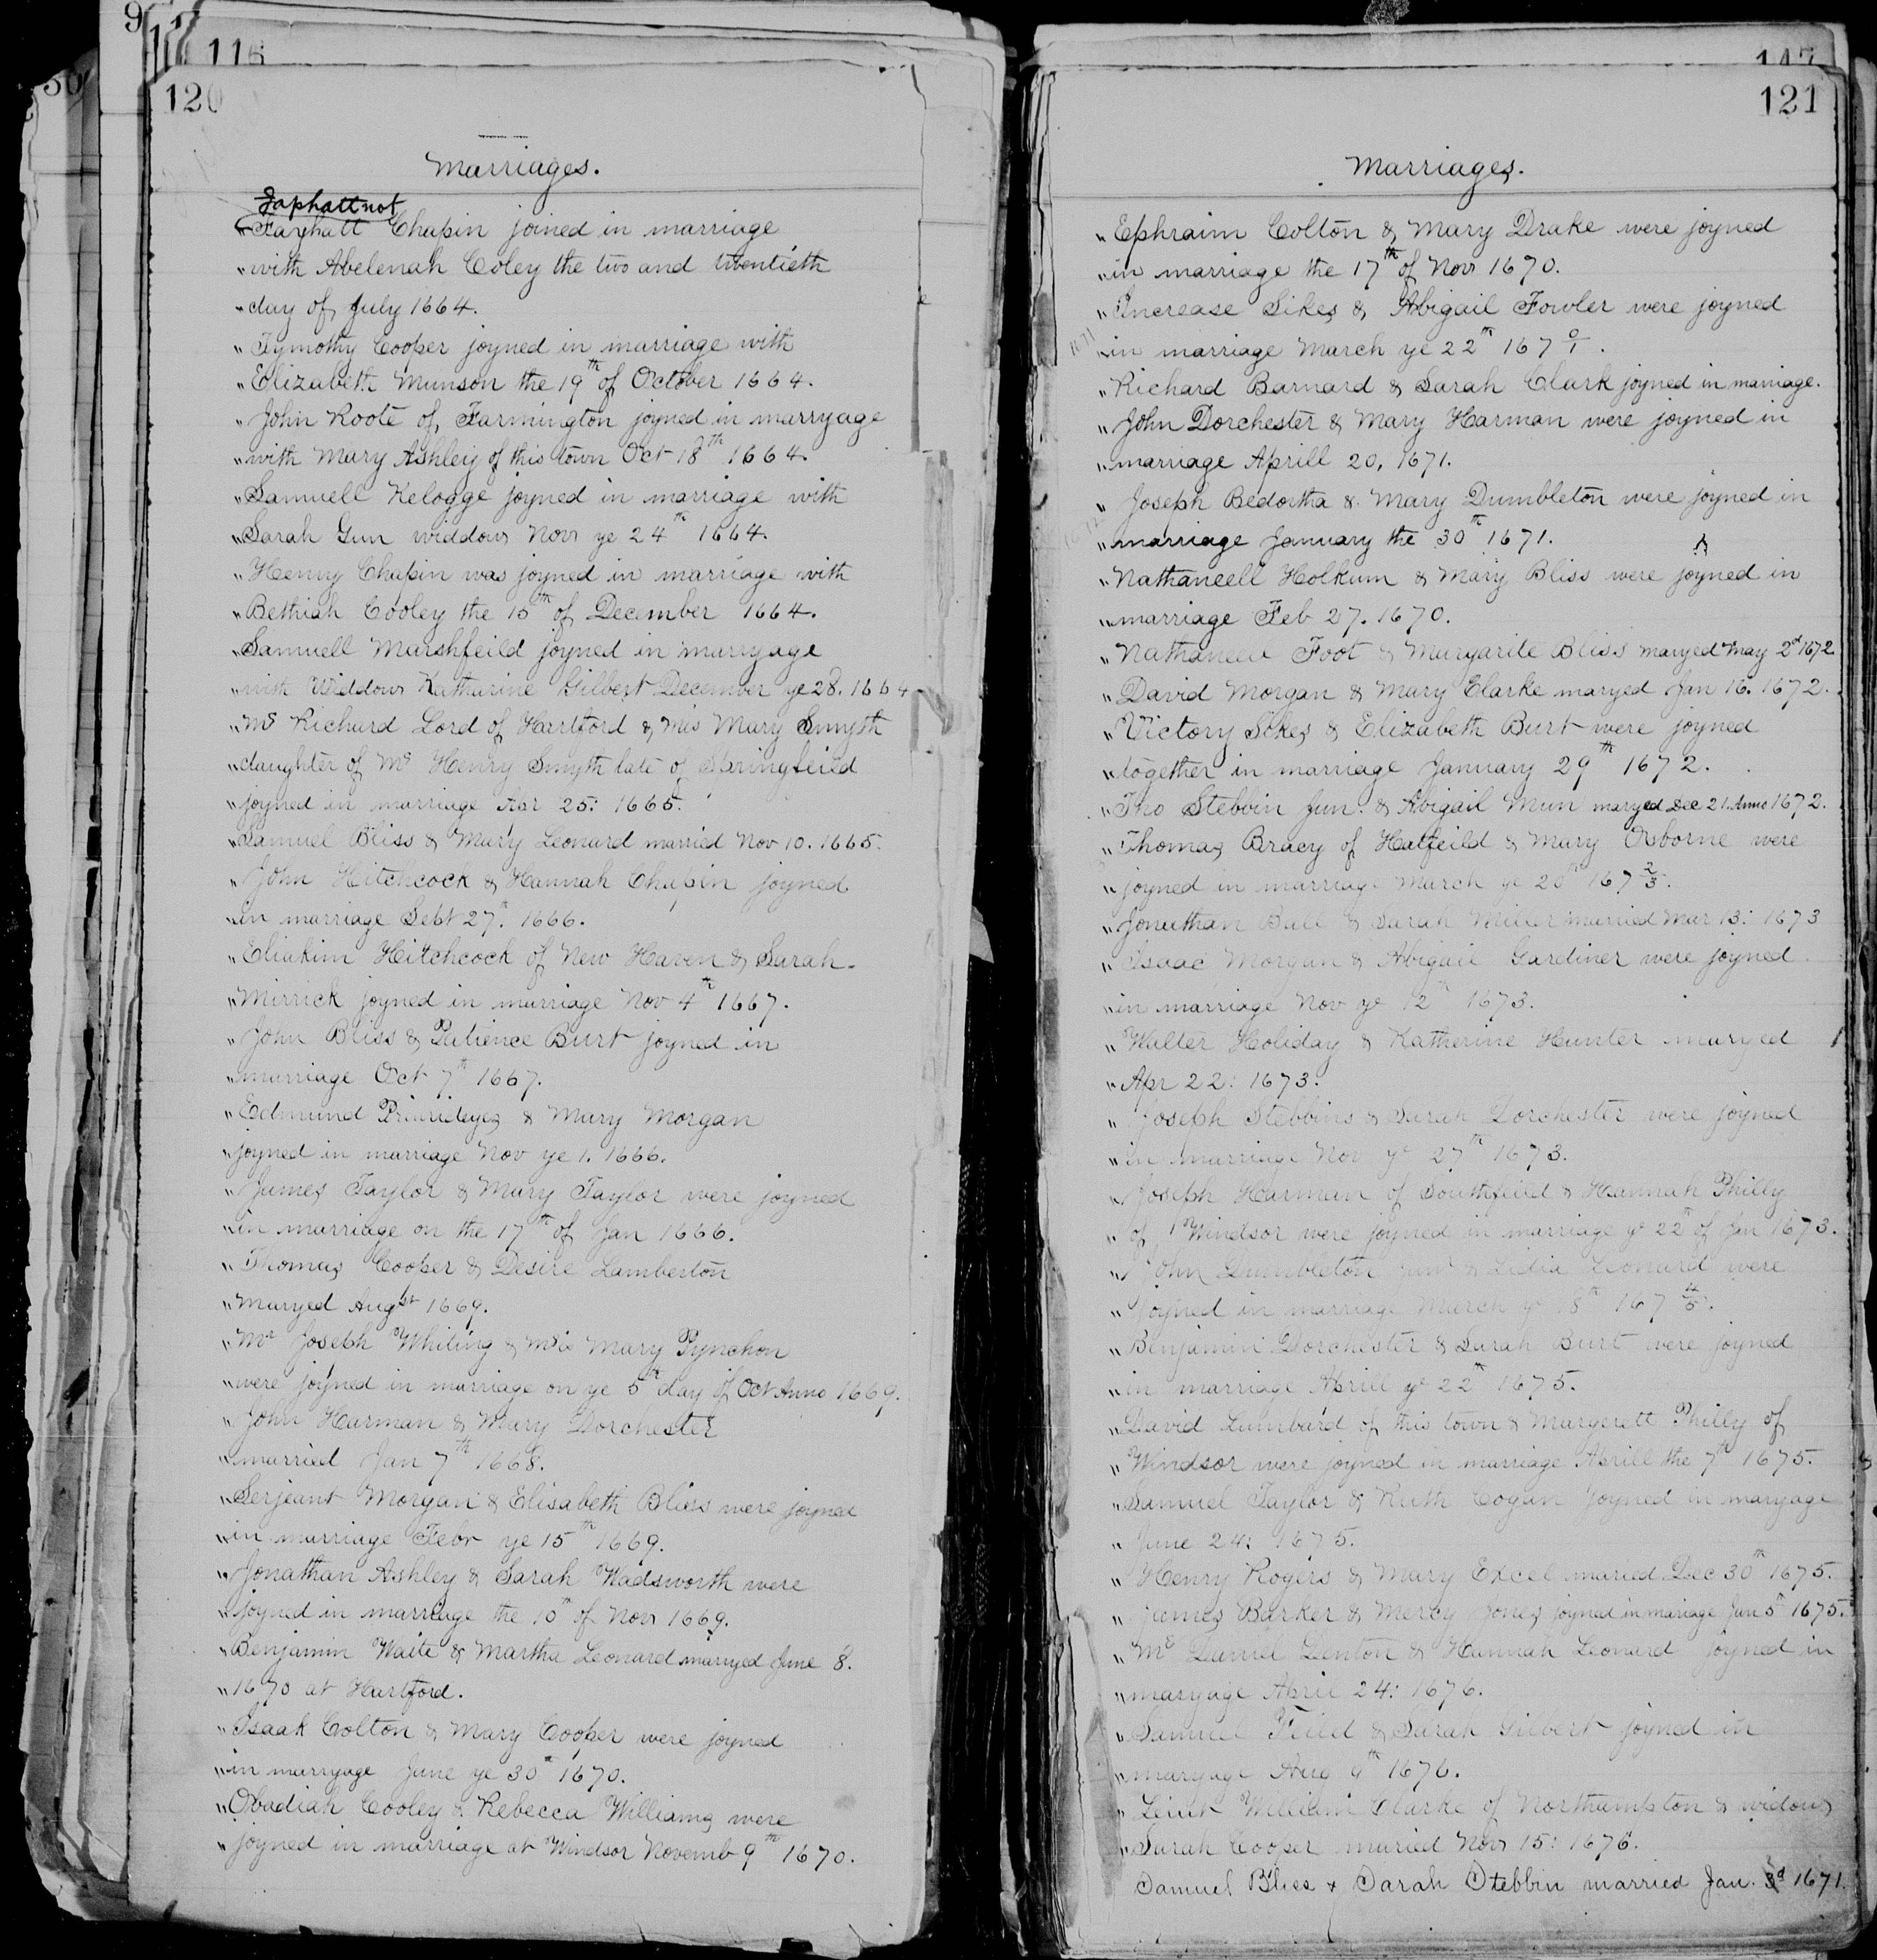 9
116
120
Marriages.
Japhatt not
"Farhatt Chapin joined in marriage
"with Abelenah Coley the two and twentieth
"day of July 1664.
"Tymothy Cooper joyned in marriage with
"Elizabeth Munson the 19th of October 1664.
"John Roote of Farmington joyned in marryage
"with Mary Ashley of this town Oct 18th 1664.
"Samuell Kelogge joyned in marriage with
"Sarah Gun widdow Nov ye 24th 1664.
"Henry Chapin was joyned in marriage with
"Bethiah Cooley the 15th of December 1664.
"Samuell Marshfeild joyned in marryage
"with Widdow Katharine Gilbert December ye 28. 1664
"Mr Richard Lord of Hartford & Mis Mary Smyth
"daughter of Mr Henry Smyth late of Springfeild
"joyned in marriage Apr 25: 1665.
"Samuel Bliss & Mary Leonard married Nov 10. 1665.
"John Hitchcock & Hannah Chapin joyned
"in marriage Sept 27th. 1666.
"Eliakim Hitchcock of New Haven & Sarah
"Mirrick joyned in marriage Nov 4th 1667.
"John Bliss & Patience Burt joyned in
"marriage Oct 7th 1667.
"Edmund Prinrideyes & Mary Morgan
"joyned in marriage Nov ye 1. 1666.
"James Taylor & Mary Taylor were joyned
"in marriage on the 17th of Jan 1666.
"Thomas Cooper & Desire Lamberton
"maryed Augst 1669.
"Mr Joseph Whiting & Mris Mary Pynchon
"were joyned in marriage on ye 5th day of Oct Anno 1669.
"John Harman & Mary Dorchester
"married Jan 7th 1668.
"Serjeant Morgan & Elisabeth Bliss were joyned
"in marriage Febr ye 15th 1669.
"Jonathan Ashley & Sarah Wadsworth were
"joyned in marriage the 10th of Nov 1669.
"Benjamin Waite & Martha Leonard marryed June 8.
"1670 at Hartford.
"Isaak Colton & Mary Cooper were joyned
"in marryage June ye 30th 1670.
"Obadiah Cooley & Rebecca Williams were
"joyned in marriage at Windsor Novemb 9th 1670.
147
121
Marriages.
"Ephraim Colton & Mary Drake were joyned
"in marriage the 17th of Nov 1670.
"Increase Sikes & Abigail Fowler were joyned
1671 "in marriage March ye 22th 167 0/1.
"Richard Barnard & Sarah Clark joyned in marriage.
"John Dorchester & Mary Harman were joyned in
"marriage Aprill 20, 1671.
"Joseph Bedortha & Mary Dumbleton were joyned in
"marriage January the 30th 1671.
"Nathaneell Holkum & Mary Bliss were joyned in
"marriage Feb 27. 1670.
"Nathaneell Foot & Margarite Bliss maryed May 2d 1672
"David Morgan & Mary Clarke maryed Jan 16. 1672.
"Victory Sikes & Elizabeth Burt were joyned
"together in marriage January 29th 1672.
"Tho Stebbin Jun. & Abigail Mun maryed Dec 21. Anno 1672.
"Thomas Bracy of Hatfeild & Mary Osborne were
"joyned in marriage March ye 20th 167 2/3.
"Jonathan Ball & Sarah Miller married Mar 13: 1673
"Isaac Morgan & Abigail Gardiner were joyned
"in marriage Nov ye 12th 1673.
"Walter Holiday & Katherine Hunter maryed
"Apr 22: 1673.
"Joseph Stebbins & Sarah Dorchester were joyned
"in marriage Nov ye 27th 1673.
"Joseph Harman of Southfeild & Hannah Philly
"of Windsor were joyned in marriage ye 22th of Jan 1673.
"John Dumbleton Junr & Lidia Leonard were
"joyned in marriage March ye 18th 167 4/5.
"Benjamin Dorchester & Sarah Burt were joyned
"in marriage Aprill ye 22th 1675.
"David Lumbard of this town & Margerett Philly of
"Windsor were joyned in marriage Aprill the 7th 1675.
"Samuel Taylor & Ruth Cogan joyned in maryage
"June 24: 1675.
"Henry Rogers & Mary Excel maried Dec 30th 1675.
"James Barker & Mercy Jones joyned in mariage Jan 5th 1675.
"Mr Daniel Denton & Hannah Leonard joyned in
"maryage April 24: 1676.
"Samuel Feild & Sarah Gilbert joyned in
"maryage Aug 9th 1676.
"Leiut William Clarke of Northampton & widow
"Sarah Cooper maried Nov 15: 1676.
Samuel Bliss & Sarah Stebbin married Jan. 3d 1671.